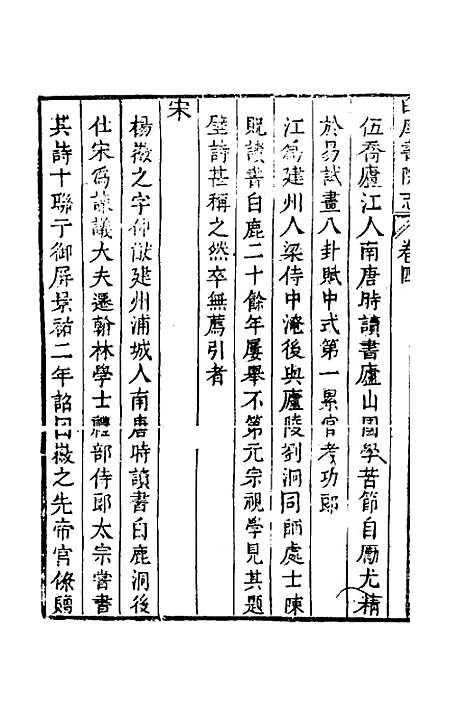 白鹿書院志 卷四
伍喬廬江人南唐時讀書廬山國學苦節自勵尤精
於易試畫八卦賦中式第一累官考功郎
江為建州人梁侍中淹後與廬陵劉洞同師處士陳
貺讀書白鹿二十餘年屢舉不第元宗視學見其題
壁詩甚稱之然卒無薦引者
宋
楊徽之字仰猷建州浦城人南唐時讀書白鹿洞後
仕宋為諫議大夫遷翰林學士禮部侍郎太宗嘗書
其詩十聯于御屏景祐二年詔曰徽之先帝宮僚賜